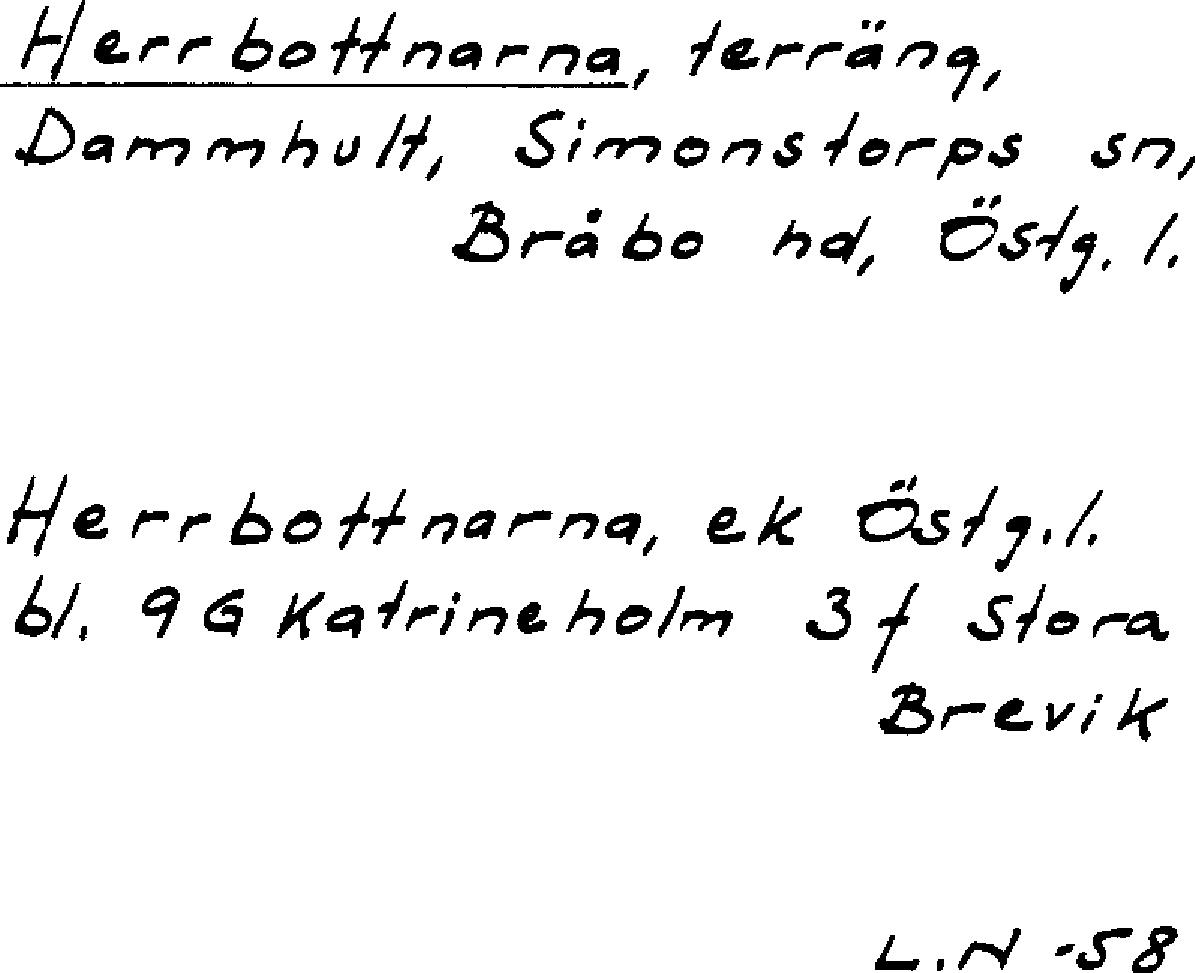 Herrbottnarna, terräng,
Dammhult, Simonstorps sn,
Bråbo hd, Östg. l.
Herrbottnarna, ek Östg. l.
bl. 9 G Katrineholm 3 f Stora
Brevik
L.N -58